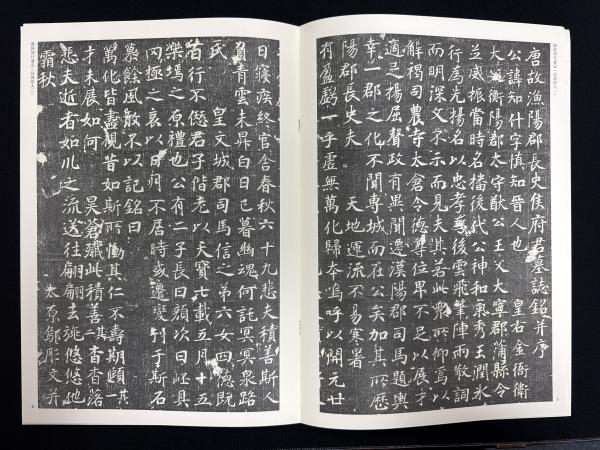 唐故漁陽郡長史侯府君墓誌銘并序
公諱知什字慎知晉人也 皇右金衛衛
大 衡陽郡太守猷公王父大寧郡蒲縣令
並威振當時名播後代公神和氣秀玉潤氷
行為先揚名以忠孝為後雲飛筆陣雨散詞
而明深文不示而見夫其若此衆所仰焉以
解褐司農寺太倉令德尊位卑不足以展才
適之楊屈聲政有異聞遷漢陽郡司馬題輿
幸一郡之化不聞專城而在公矣加其所歷
陽郡長史夫 天地運流不易寒暑
有盈虧一乎虛無萬化歸本嗚呼以開元廿
日寢疾終官舍春秋六十九悲夫積善斯人
負青雲未昇白日已暮幽魂何託冥冥泉路
氏 皇文城郡司馬信之弟六女四德既
百行不僁君子偕老以天寶七載五月十五
樂塲之原禮也公有二子長曰頲次曰岯具
罔極之哀以日月不居時或遷變刊于斯石
慕餘風敢不以記銘曰
萬化皆盡觀昔如斯所慟其仁不壽期頤一其
才未展如何 昊蒼殲此積善二其杳杳落
悲夫逝者如川之流送往翩翩去旐悠悠地
霜秋 太原鄔彤文并